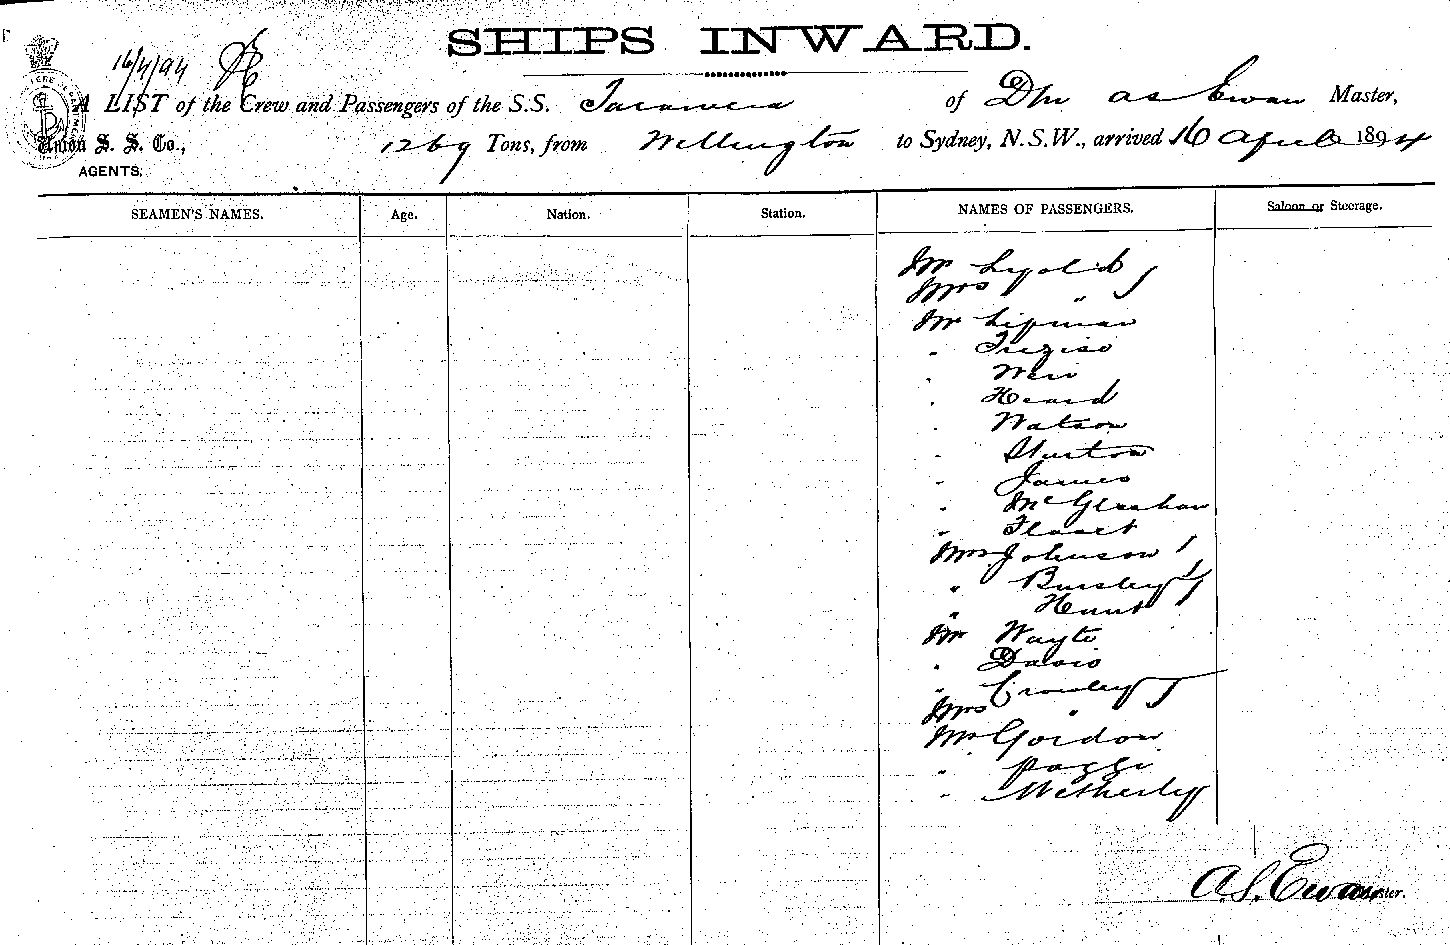 SHIPS INWARD.
16/4/94
A LIST of the Crew and Passengers of the S.S. Tarawera of Dn AS Ewan Master,
Union S. S. Co., 1269 Tons, from Wellington to Sydney, N.S.W., arrived 16 April 1894
AGENTS.
SEAMEN'S NAMES. Age. Nation. Station. NAMES OF PASSENGERS. Saloon or Steerage.
Mr
Mrs "
Mr Lipman
"
" Weir
" Heard
" Watson
"
" James
" McGlashan
"
Mrs Johnson
"
" Hunt
Mr Wayte
" Davis
" Crowley
Mrs "
Mr Gordon
"
" Wetherley
A.S. Ewan Master.